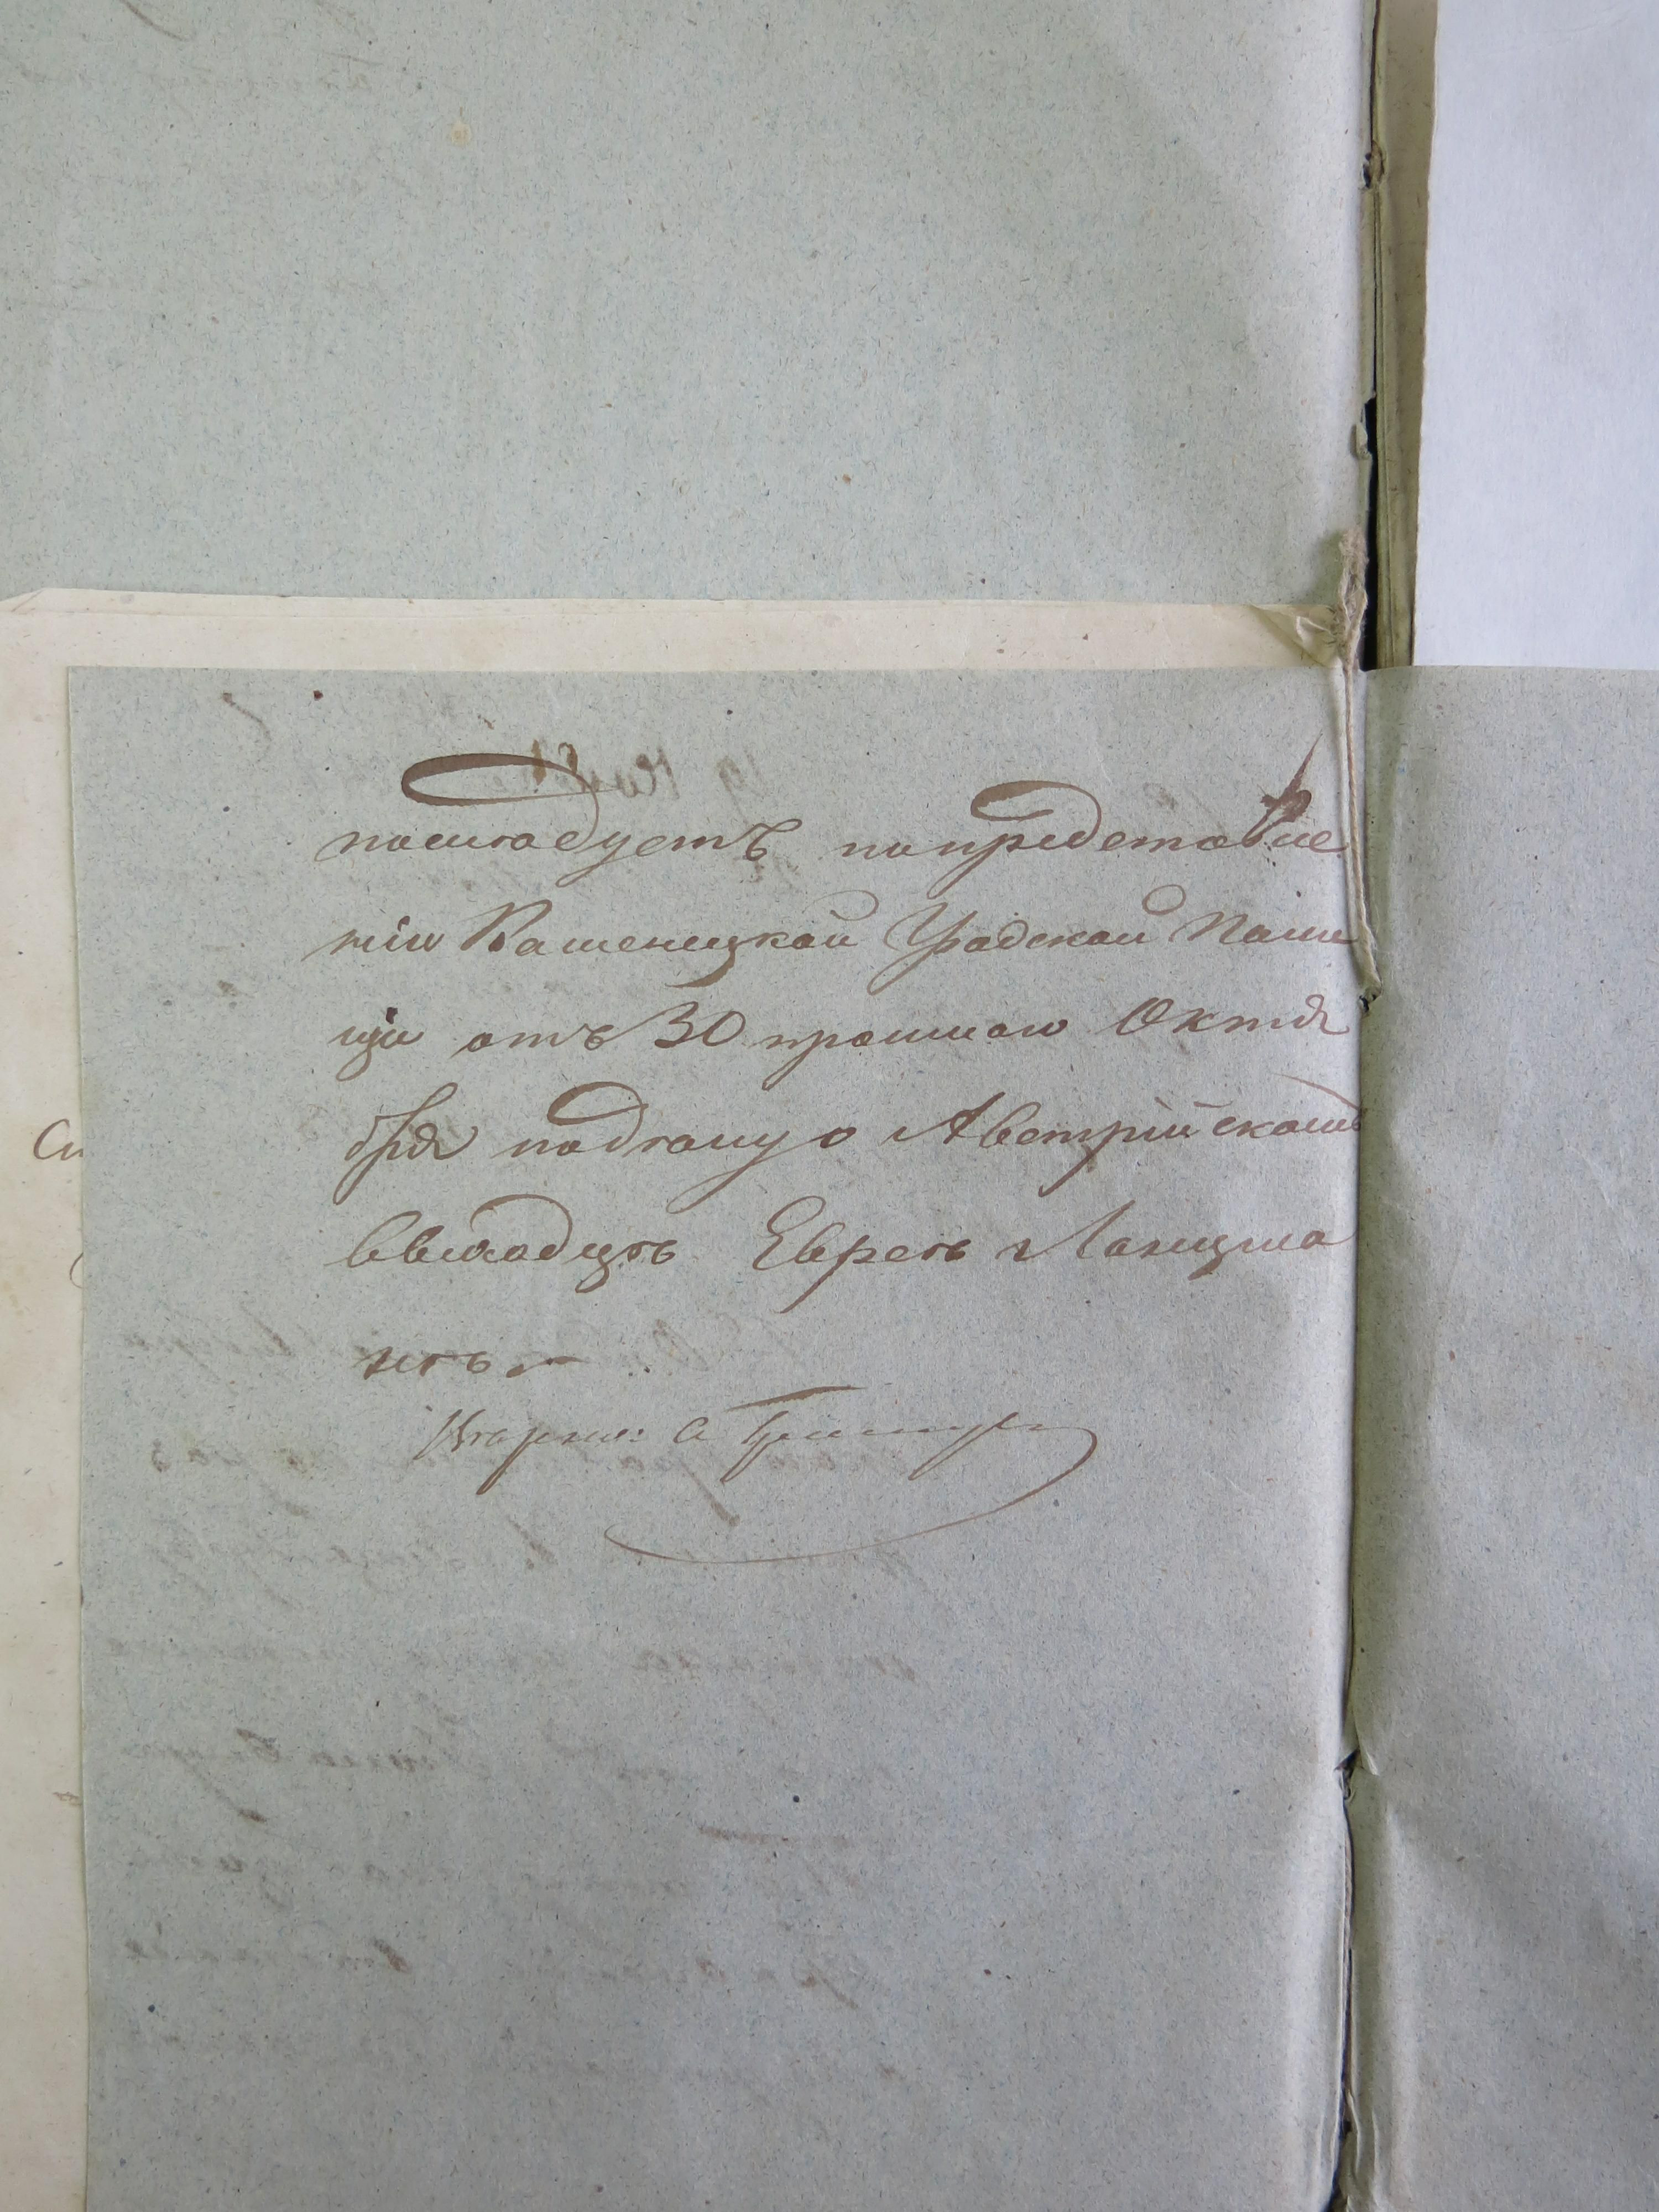 последуетъ попредставле
нію Каменецкой Градской Поли
ціи отъ 30 прошлаго Октя
бря поданному о Австрійскомъ
выходцѣ Евреѣ Ланцма
нѣ.
Си